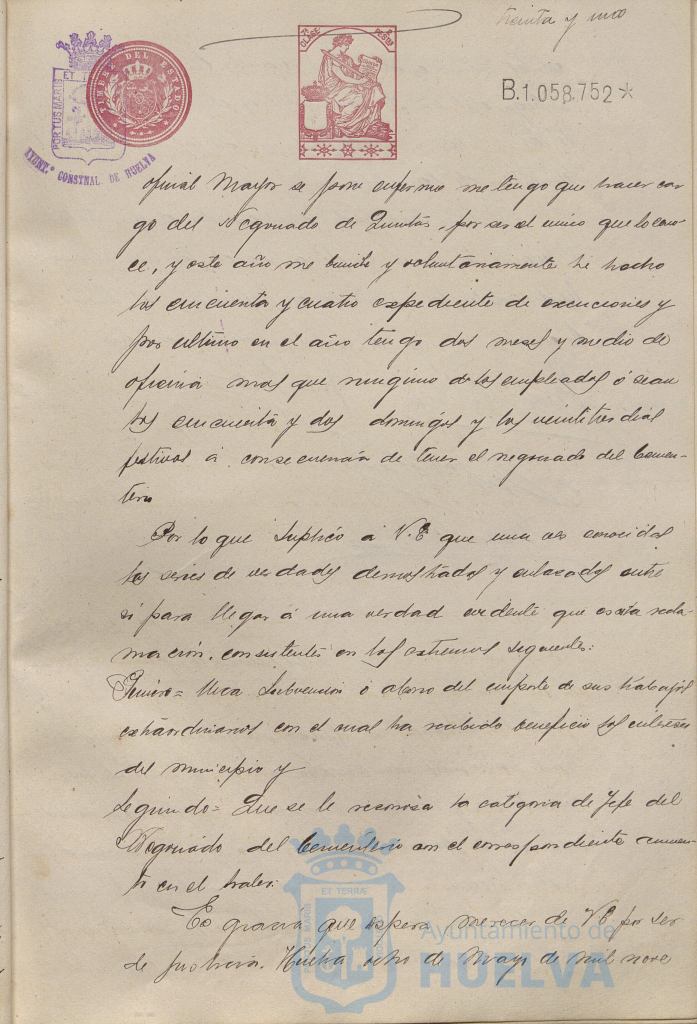 treinta y uno
7ª CLASE
PESETAS
TIMBRE DEL ESTADO
PORTUS MARIS ET TERRÆ
AYUNTº CONSTNAL. DE HUELVA
B.1.058.752*
oficial Mayor se pone enferme me tengo que hacer car
go del Negociado de Quintas, por ser el unico que lo cono-
ce, y este año me y voluntariamente he hecho
los cincuenta y cuatro expediente de excenciones y
por ultimo en el año tengo dos meses y medio de
oficina mas que ninguno de los empleados ó sean
los cincuenta y dos domingos y los veintitres dias
festivos á consecuencia de tener el negociado del Cemen-
terio
Por lo que suplico á V.E que una vez conocidas
las series de verdades demostradas y enlazadas entre
si para llegar á una verdad evidente que es esta recla-
macion, consistentes en los extremos siguientes:
Primero= Una Subvencion ó abono del importe de sus trabajos
extraordinarios con el cual ha recibido beneficio los intereses
del municipio y
Segundo= Que se le reconozca la categoria de Jefe del
Negociado del Cementerio con el correspondiente aumen-
to en el haber:
Es gracia que espera merecer de V.E por ser
de justicia. Huelva ocho de Mayo de mil nove
PORTUS MARIS ET TERRÆ
Ayuntamiento de
HUELVA